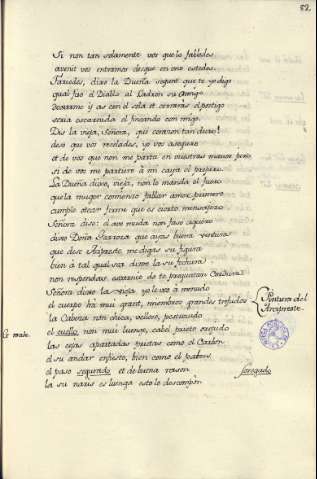 82.
Si non tan solamente vos que la fabledes
avenit vos entramos desque en uno estedes.
Fasedes, dixo la Dueña segunt que te yo digo
qual fiso el Diablo al Ladron su amigo
Dexarme y as con el sola et cerrarás el postigo
seria escarnida el fincando con migo.
Dis la vieja, Señora, qué corasón tan duro!
desi que vos recelades, yo vos aseguro
et de vos que non me parta en vuestras manos juro
si de vos me partiere à mi caya el perjuro.
La Dueña dixo, vieja, non lo manda el fuero
que la muger comience fablar amor primero
cumple otear firme que es cierto mensagero
Señora dis: el ave muda non fase agüero
dixo Doña Garrosa que ayas buena ventura
que dese Arcipreste me digas su figura
bien à tal qual sea dime la su fechura
non respondas escarnio do te preguntan cordura
Señora dixo la vieja yo le veo à menudo
el cuerpo há muy grant, miembros grandes trefudos
la Cabeza non chica, velloso, pescozudo
el cuello non muy luengo, cabel prieto orejudo
las cejas apartadas prietas como el Carbón
el su andar enfiesto, bien como el pabón
el paso segurado et de buena rason
la su naris es luenga esto le descompón
Pintura del
Arcipreste.
sosegado